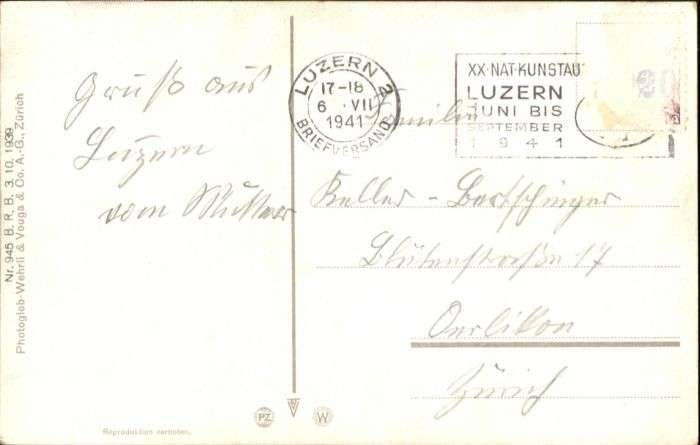 Gruß aus
Luzern
vom Mutter
LUZERN 2
17-18
6. VII
1941
BRIEFVERSAND
XX·NAT·KUNSTAU
LUZERN
JUNI BIS
SEPTEMBER
1941
20
Familie
Keller - Bertschinger
Blütenstraße 17
Oerlikon
Zürich
Nr. 945 B. R. B. 3. 10. 1939
Photoglob-Wehrli & Vouga & Co. A.-G., Zürich
Reproduktion verboten.
PZ
W